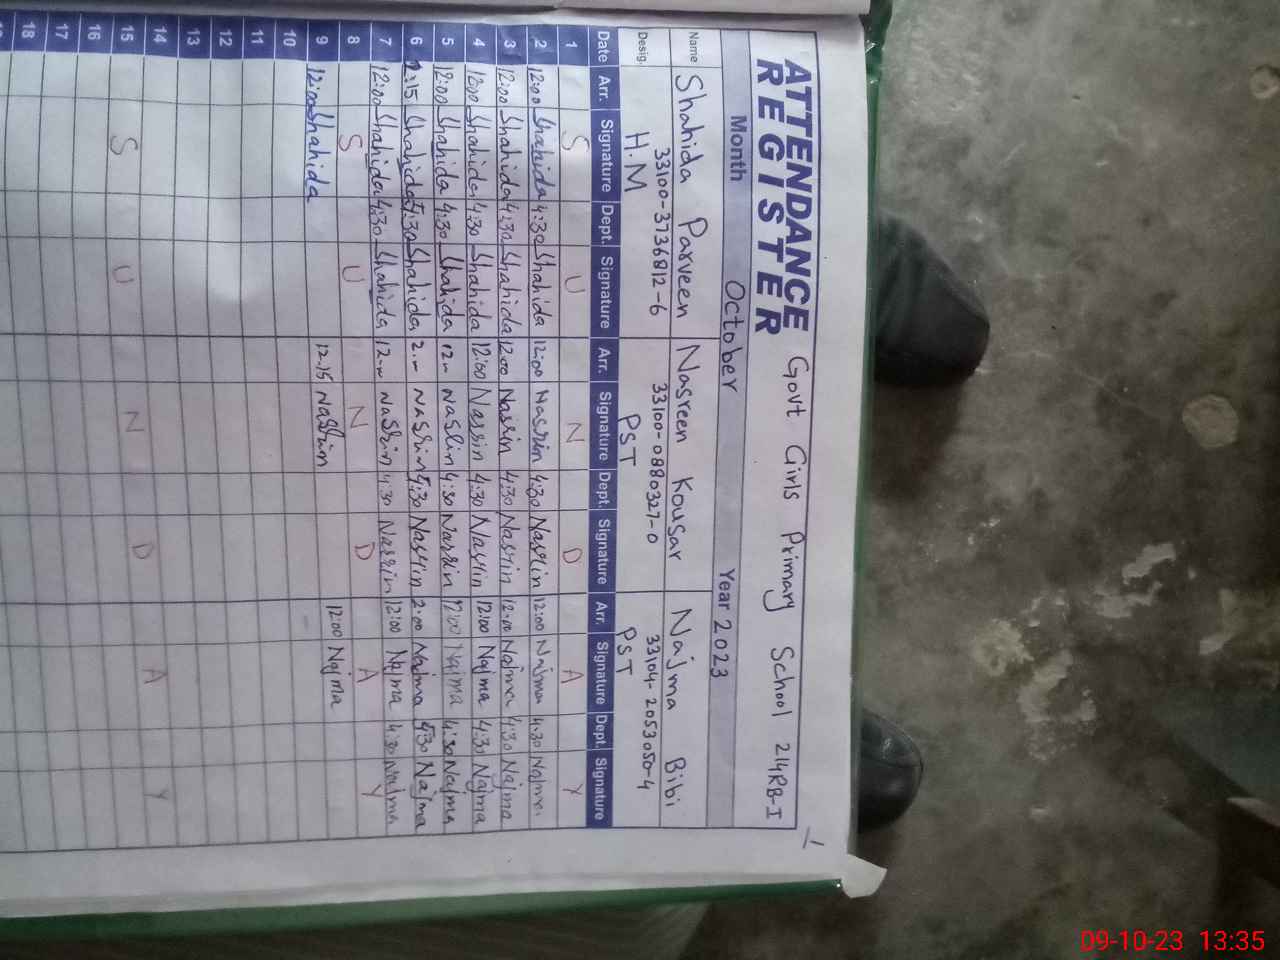 ATTENDANCE REGISTER Govt Girls Primary School 214RB-I
Month October Year 2023
Name Shahida Parveen Nasreen Kousar Najma Bibi
33100-3736812-6 33100-0880327-0 33104-2053050-4
Desig. H.M PST PST
Date Arr. Signature Dept. Signature Arr. Signature Dept. Signature Arr. Signature Dept. Signature
1 S U N D A Y
2 12:00 Shahida 4:30 Shahida 12:00 Nasrin 4:30 Nasrin 12:00 Najma 4:30 Najma
3 12:00 Shahida 4:30 Shahida 12:00 Nasrin 4:30 Nasrin 12:00 Najma 4:30 Najma
4 12:00 Shahida 4:30 Shahida 12:00 Nasrin 4:30 Nasrin 12:00 Najma 4:30 Najma
5 12:00 Shahida 4:30 Shahida 12 Nasrin 4:30 Nasrin 12:00 Najma 4:30 Najma
6 2:15 Shahida 5:30 Shahida 2 Nasrin 5:30 Nasrin 2:00 Najma 5:30 Najma
7 12:00 Shahida 4:30 Shahida 12 Nasrin 4:30 Nasrin 12:00 Najma 4:30 Najma
8 S U N D A Y
9 12:00 Shahida 12:15 Nasrin 12:00 Najma
10
11
12
13
14
15 S U N D A Y
16
17
18
09-10-23 13:35